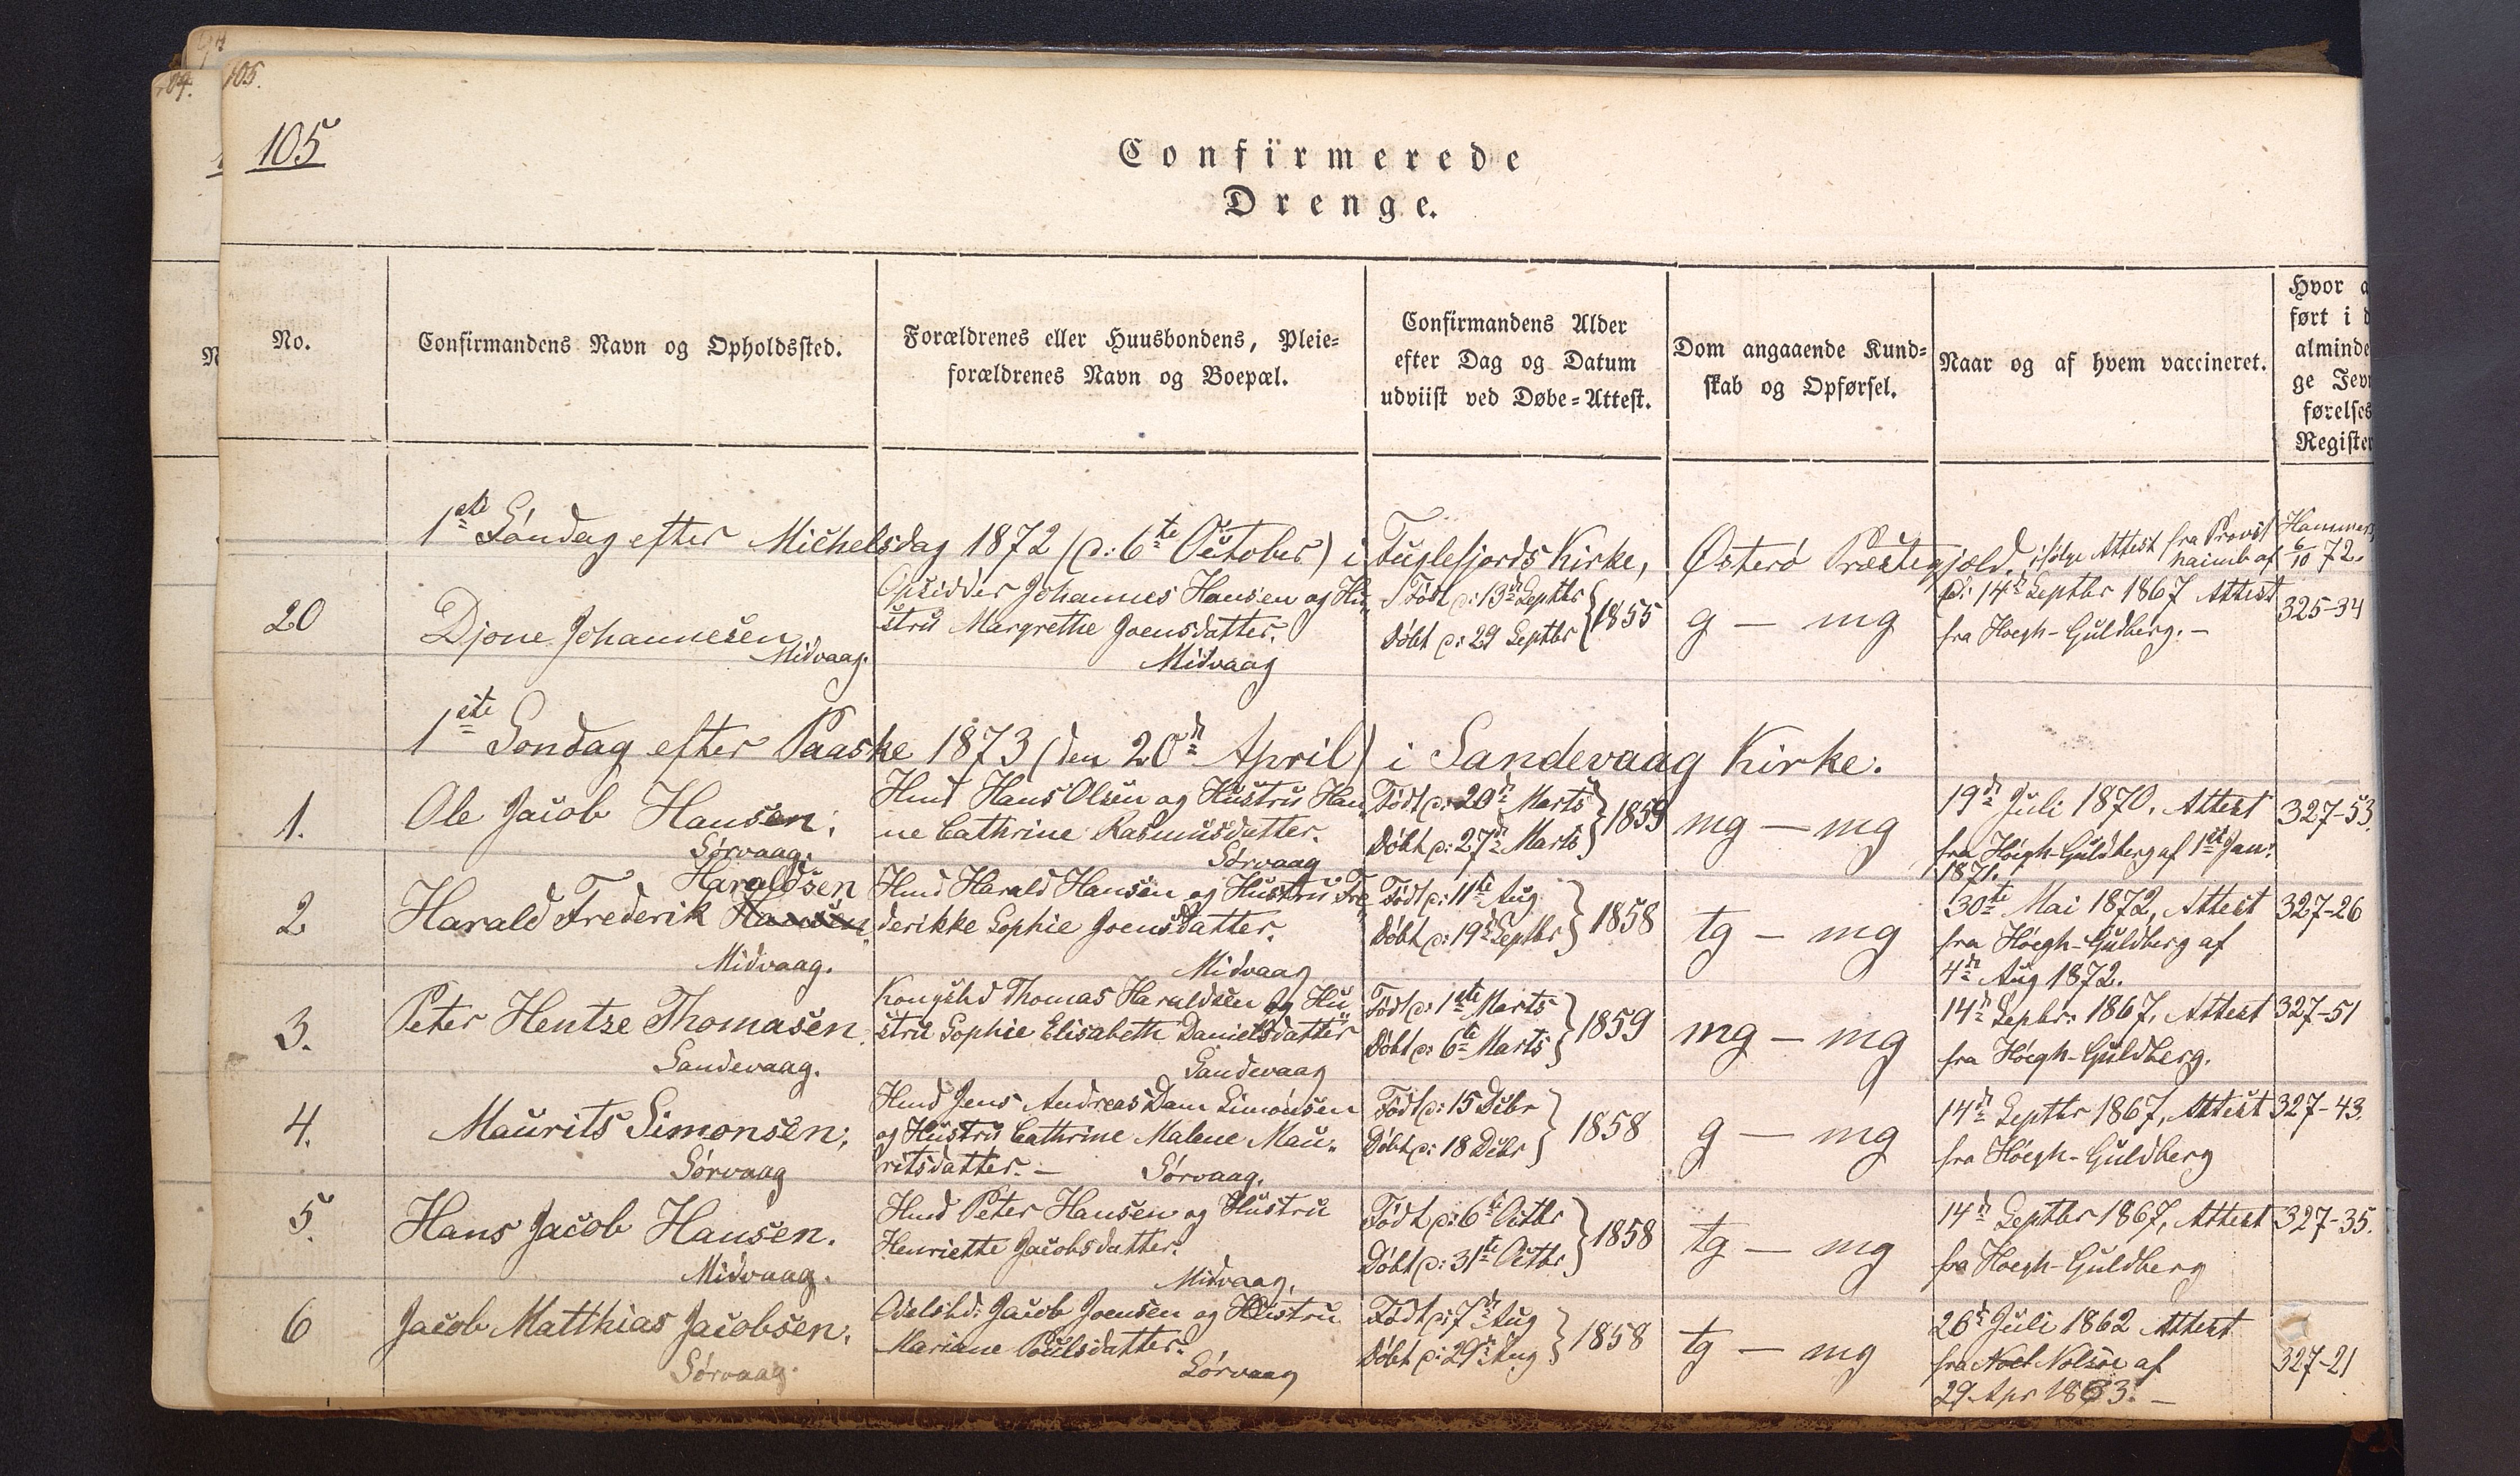 104.
105.
105
Confirmerede
Drenge.
No.
Confirmandens Navn og Opholdssted.
Forældrenes eller Huusbondens, Pleie-
forældrenes Navn og Boepæl.
Confirmandens Alder
efter Dag og Datum
udviist ved Døbe-Attest.
Dom angaaende Kund-
skab og Opførsel.
Naar og af hvem vaccineret.
Hvor a
ført i d
alminde
ge Jevn
førelses
Register
1ste Søndag efter Michelsdag 1872 (d: 6te October) i Fuglefjords Kirke, Østerø Præstegjæld. ifølge Attest fra Provst Hammers-
haimb af 6/10 72.
20
Djone Johannesen
Midvaag.
Opsidder Johannes Hansen og Hu-
stru Margrethe Joensdatter.
Midvaag
Født d: 13de Septbr
Døbt d: 29 Septbr } 1855
g — mg
d: 14de Septbr 1867 Attest
fra Hoegh-Guldberg. —
325-34
1ste Søndag efter Paaske 1873 (den 20de April) i Sandevaag Kirke.
1.
Ole Jacob Hansen.
Sørvaag.
Hmd Hans Olsen og Hustru Han-
ne Cathrine Rasmusdatter.
Sørvaag
Født d: 20de Marts
Døbt d: 27de Marts } 1859
mg — mg
19de Juli 1870. Attest
fra Höegh-Guldberg af 1ste Jan:
1871.
327-53.
2
Haraldsen
Harald Frederik Hansen
Midvaag.
Hmd Harald Hansen og Hustru Fre-
derikke Sophie Joensdatter.
Midvaag
Født d: 11te Aug
Døbt d: 19de Septbr } 1858
tg — mg
30te Mai 1872, Attest
fra Höegh-Guldberg af
4de Aug 1872.
327-26
3.
Peter Hentze Thomasen.
Sandevaag.
Kongsbd Thomas Haraldsen og Hu-
stru Sophie Elisabeth Danielsdatter
Sandevaag
Født d: 1ste Marts
Døbt d: 6te Marts } 1859
mg — mg
14de Sepbr: 1867, Attest
fra Höegh-Guldberg.
327-51
4.
Maurits Simonsen,
Sørvaag
Hmd Jens Andreas Dam Simonsen
og Hustru Cathrine Malene Mau-
ritsdatter. —
Sørvaag.
Født d: 15 Debr
Døbt d: 18 Debr } 1858
g — mg
14de Septbr 1867, Attest
fra Höegh-Guldberg
327-43.
5.
Hans Jacob Hansen.
Midvaag.
Hmd Peter Hansen og Hustru
Henriette Jacobsdatter.
Midvaag.
Født d: 6te Octbr
Døbt d: 31te Octbr } 1858
tg — mg
14de Septbr 1867, Attest
fra Hoegh-Guldberg
327-35.
6
Jacob Matthias Jacobsen.
Sørvaag.
Odelsbd: Jacob Joensen og Hustru
Mariane Poulsdatter.
Sørvaag
Født d: 7de Aug
Døbt d: 29de Aug } 1858
tg — mg
26de Juli 1862 Attest
fra Noel Nolsøe af
29 Apr 1863. —
327-21